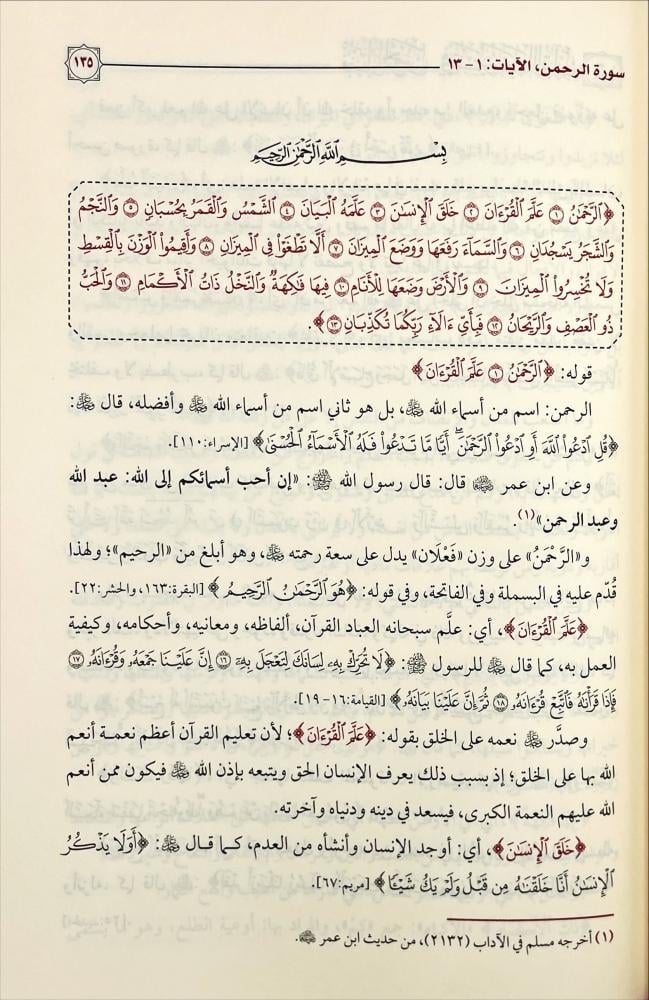 سورة الرحمن، الآيات: ١ - ١٣
١٣٥
بِسْمِ ٱللَّهِ ٱلرَّحْمَٰنِ ٱلرَّحِيمِ
﴿ٱلرَّحْمَٰنُ ۝١ عَلَّمَ ٱلْقُرْءَانَ ۝٢ خَلَقَ ٱلْإِنسَٰنَ ۝٣ عَلَّمَهُ ٱلْبَيَانَ ۝٤ ٱلشَّمْسُ وَٱلْقَمَرُ بِحُسْبَانٍ ۝٥ وَٱلنَّجْمُ
وَٱلشَّجَرُ يَسْجُدَانِ ۝٦ وَٱلسَّمَآءَ رَفَعَهَا وَوَضَعَ ٱلْمِيزَانَ ۝٧ أَلَّا تَطْغَوْا۟ فِى ٱلْمِيزَانِ ۝٨ وَأَقِيمُوا۟ ٱلْوَزْنَ بِٱلْقِسْطِ
وَلَا تُخْسِرُوا۟ ٱلْمِيزَانَ ۝٩ وَٱلْأَرْضَ وَضَعَهَا لِلْأَنَامِ ۝١٠ فِيهَا فَٰكِهَةٌ وَٱلنَّخْلُ ذَاتُ ٱلْأَكْمَامِ ۝١١ وَٱلْحَبُّ
ذُو ٱلْعَصْفِ وَٱلرَّيْحَانُ ۝١٢ فَبِأَىِّ ءَالَآءِ رَبِّكُمَا تُكَذِّبَانِ ۝١٣﴾
قوله: ﴿ٱلرَّحْمَٰنُ ۝١ عَلَّمَ ٱلْقُرْءَانَ﴾
الرحمن: اسم من أسماء الله ﷻ، بل هو ثاني اسم من أسماء الله ﷻ وأفضله، قال ﷻ:
﴿قُلِ ٱدْعُوا۟ ٱللَّهَ أَوِ ٱدْعُوا۟ ٱلرَّحْمَٰنَ ۖ أَيًّا مَّا تَدْعُوا۟ فَلَهُ ٱلْأَسْمَآءُ ٱلْحُسْنَىٰ﴾ [الإسراء: ١١٠].
وعن ابن عمر ﵄ قال: قال رسول الله ﷺ: «إن أحب أسمائكم إلى الله: عبد الله
وعبد الرحمن»(١).
و«الرَّحْمَنُ» على وزن «فَعْلَان» يدل على سعة رحمته ﷻ، وهو أبلغ من «الرحيم»؛ ولهذا
قُدّم عليه في البسملة وفي الفاتحة، وفي قوله: ﴿هُوَ ٱلرَّحْمَٰنُ ٱلرَّحِيمُ﴾ [البقرة: ١٦٣، والحشر: ٢٢].
﴿عَلَّمَ ٱلْقُرْءَانَ﴾، أي: علَّم سبحانه العباد القرآن، ألفاظه، ومعانيه، وأحكامه، وكيفية
العمل به، كما قال ﷻ للرسول ﷺ: ﴿لَا تُحَرِّكْ بِهِۦ لِسَانَكَ لِتَعْجَلَ بِهِۦٓ ۝١٦ إِنَّ عَلَيْنَا جَمْعَهُۥ وَقُرْءَانَهُۥ ۝١٧
فَإِذَا قَرَأْنَٰهُ فَٱتَّبِعْ قُرْءَانَهُۥ ۝١٨ ثُمَّ إِنَّ عَلَيْنَا بَيَانَهُۥ﴾ [القيامة: ١٦- ١٩].
وصدَّر ﷻ نعمه على الخلق بقوله: ﴿عَلَّمَ ٱلْقُرْءَانَ﴾؛ لأن تعليم القرآن أعظم نعمة أنعم
الله بها على الخلق؛ إذ بسبب ذلك يعرف الإنسان الحق ويتبعه بإذن الله ﷻ فيكون ممن أنعم
الله عليهم النعمة الكبرى، فيسعد في دينه ودنياه وآخرته.
﴿خَلَقَ ٱلْإِنسَٰنَ﴾، أي: أوجد الإنسان وأنشأه من العدم، كما قال ﷻ: ﴿أَوَلَا يَذْكُرُ
ٱلْإِنسَٰنُ أَنَّا خَلَقْنَٰهُ مِن قَبْلُ وَلَمْ يَكُ شَيْـًٔا﴾ [مريم: ٦٧].
(١) أخرجه مسلم في الآداب (٢١٣٢)، من حديث ابن عمر ﵄.